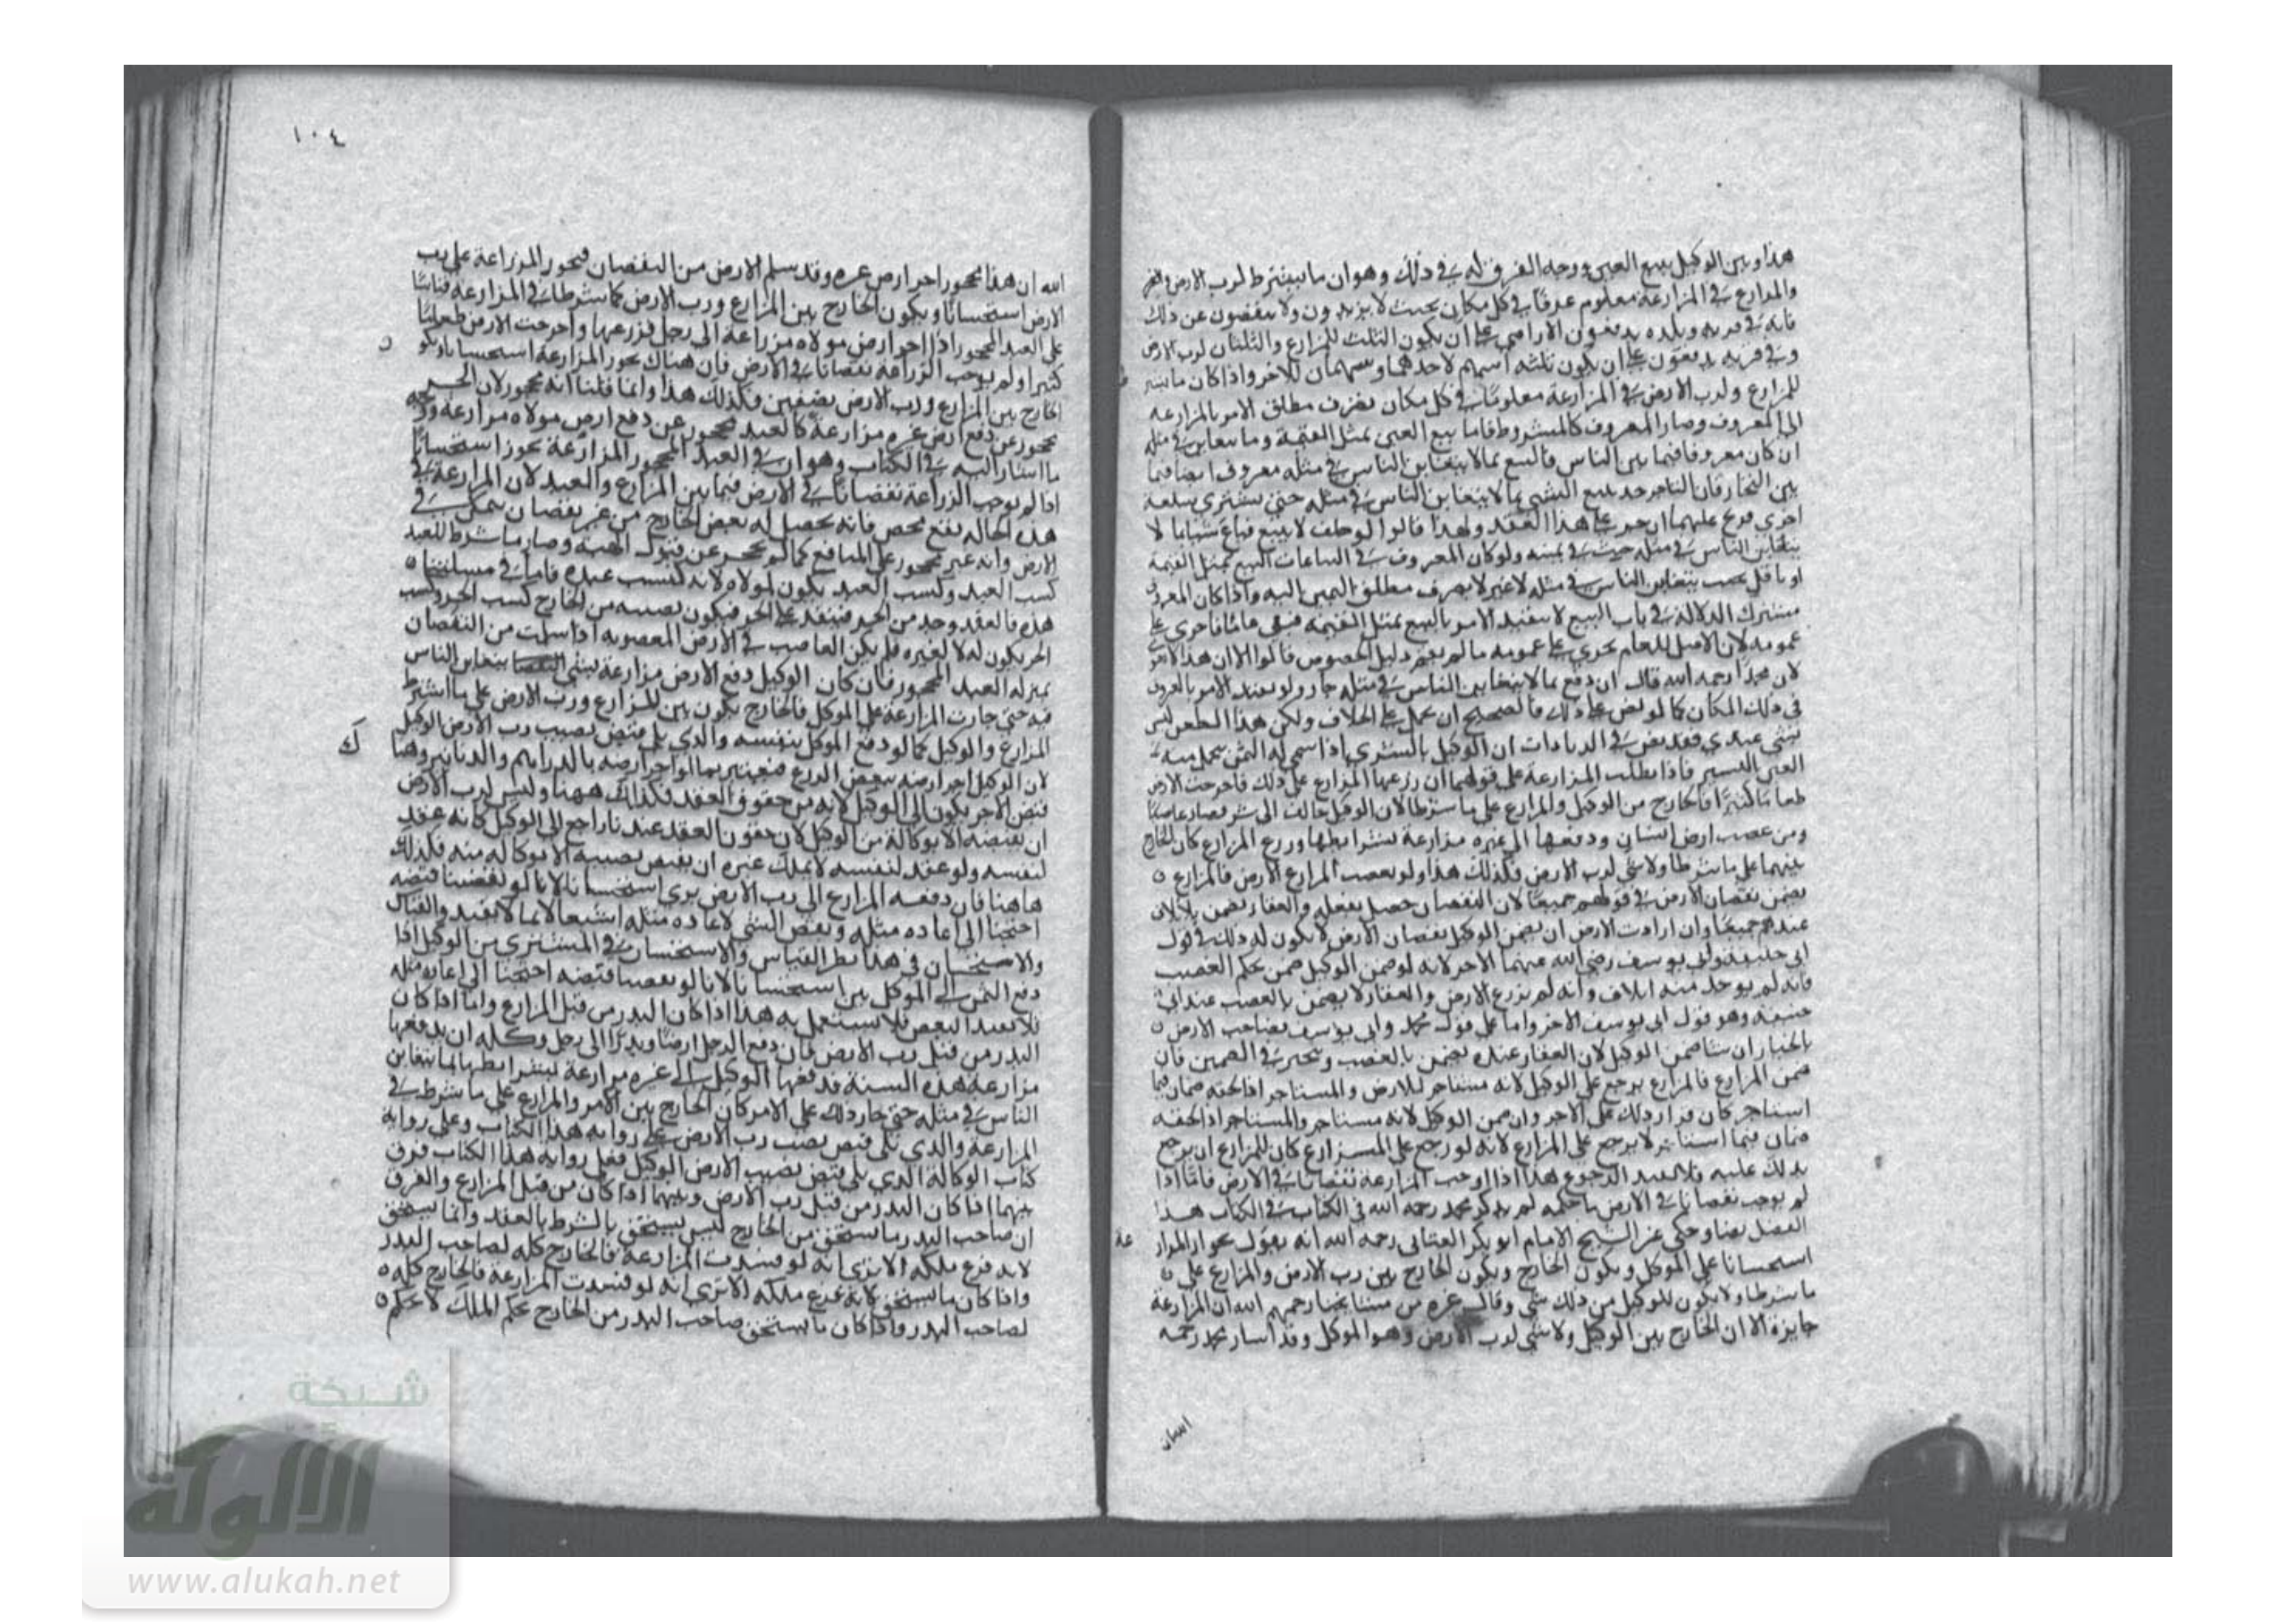 هذا وبين الوكيل ببيع العين ووجه الفرق له في ذلك وهو ان ما يشترط لرب الارض
والمزارع في المزارعة معلوم عرفا في كل مكان بحيث لا يزيدون ولا ينقصون عن ذلك
فانه في قرية وبلدة يدفعون الاراضي على ان يكون الثلث للمزارع والثلثان لرب الارض
وفي قرية يدفعون على ان يكون ثلثه اسهم لاحدهما وسهمان للاخر واذا كان ما
للمزارع ولرب الارض في المزارعة معلومًا في كل مكان مطلق الامر بالمزارعه
الى المعروف وصار المعروف كالمشروط فاما بيع العين بمثل القيمة وما يتغابن في مثله
ان كان معروفا فيما بين الناس فالبيع بما لا يتغابن الناس في مثله معروف ايضا فيما
بين التجار فان التاجر قد يبيع الشي بما لا يتغابن الناس في مثله حتى يشتري سلعة
اخرى على هذا العقد ولهذا قالوا لو حلف لا يبيع فباع شيا بما لا
يتغابن الناس في مثله حنث في يمينه ولو كان المعروف في البياعات البيع بمثل القيمة
او باقل يتغابن الناس في مثله لا غير لا يصرف مطلق اليمين اليه واذا كان المعروف
مشترك الدلالة في باب البيع لا يتقيد الامر بالبيع بمثل القيمة فبقي عاما فاجري على
عمومه لان الاصل للعام يجري على عمومه ما لم يقم دليل الخصوص قالوا الا ان هذا
لان محمدا رحمه الله قال ان دفع بما لا يتغابن الناس في مثله جاز ولو تقيد الامر بالعرف
في ذلك المكان كما لو نص على ذلك فالصحيح ان على الخلاف ولكن هذا الطعن ليس
بشي عندي فقد نص في الزيادات ان الوكيل بالشري اذا سمى له الثمن
الغبن اليسير فاذا بطلت المزارعة على قولهما ان زرعها المزارع على ذلك فاخرجت الارض
طعاما كثيرا فالخارج من الوكيل والمزارع على ما شرطا لان الوكيل خالف فصار غاصبا
ومن غصب ارض انسان ودفعها الى غيره مزارعة بشرائطها وزرع المزارع كان الخارج
بينهما على ما شرطا ولا شي لرب الارض فكذلك هذا ولو غصب المزارع الارض فالمزارع
يضمن نقصان الارض في قولهم جميعًا لان النقصان حصل بفعله والعقار يضمن بالاتلاف
عندهم جميعًا وان ارادت الارض ان يضمن الوكيل نقصان الارض لا يكون له ذلك في قول
ابي حنيفة وابي يوسف رضي الله عنهما الاخر لانه لو ضمن الوكيل ضمن بحكم الغصب
فانه لم يوجد منه اتلاف وانه لم يزرع الارض والعقار لا يضمن بالغصب عند ابي
حنيفة وهو قول ابي يوسف الاخر واما على قول محمد وابي يوسف فصاحب الارض
بالخيار ان شا ضمن الوكيل لان العقار عنده يضمن بالغصب فان
ضمن المزارع فالمزارع يرجع على الوكيل لانه مستاجر للارض والمستاجر اذا لحقه ضمان فيما
استاجر كان قرار ذلك على الاجر وان ضمن الوكيل لانه مستاجر والمستاجر اذا لحقه
ضمان فيما استاجر لا يرجع على المزارع لانه لو رجع على المزارع كان للمزارع ان يرجع
بذلك عليه فلا يفيد الرجوع هذا اذا اوجبت المزارعة نقصانا في الارض فاما اذا
لم يوجب نقصانا في الارض ما حكمه لم يذكر محمد رحمه الله في الكتاب في الكتاب هذا
الفصل نصا وحكى عن الشيخ الامام ابو بكر العتابي رحمه الله انه يقول بجواز المزارعة
استحسانا على الموكل ويكون الخارج ويكون الخارج بين رب الارض والمزارع على
ما شرطا ولا يكون للوكيل من ذلك شي وقال غيره من مشايخنا رحمهم الله ان المزارعة
جايزة الا ان الخارج بين الوكيل ولا شي لرب الارض وهو الموكل وقد اشار محمد رحمه
١٠٤
الله ان هذا محجور اجر ارض غيره وقد سلم الارض من النقصان فتجوز المزارعة على رب
الارض استحسانا ويكون الخارج بين المزارع ورب الارض كما شرطا في المزارعة قياسًا
على العبد المحجور اذا اجر ارض مولاه مزارعة الى رجل فزرعها واخرجت الارض طعامًا
كثيرا ولم يوجب الزراعة نقصانا في الارض فان هناك تجوز المزارعة استحسانا ويكون
الخارج بين المزارع ورب الارض نصفين وكذلك هذا وانما قلنا انه محجور لان الحر
محجور عن دفع ارض غيره مزارعة كالعبد محجور عن دفع ارض مولاه مزارعة
ما اشار اليه في الكتاب وهو ان في العبد المحجور المزارعة تجوز استحسانًا
اذا لم يوجب الزراعة نقصانًا في الارض فيما بين المزارع والعبد لان المزارعة في
هذه الحالة نفع محض فانه يحصل له بعض الخارج من غير نقصان يتمكن في
الارض وانه غير محجور على المنافع كما لم يحجر عن قبول الهبة وصار ما شرط للعبد
كسب العبد وكسب العبد يكون لمولاه لانه كسب عبده فاما في مسئلتنا
هذه فالعقد وجد من الحر فينفذ على الحر فيكون نصيبه من الخارج كسب الحر وكسب
الحر يكون له لا لغيره فلم يكن الغاصب في الارض المغصوبة اذا سلمت من النقصان
بمنزلة العبد المحجور فان كان الوكيل دفع الارض مزارعة بشي يتغابن الناس
فيه حتى جازت المزارعة على الموكل فالخارج يكون بين المزارع ورب الارض على ما اشترط
المزارع والوكيل كما لو دفع الموكل بنفسه والذي يلي قبض نصيب رب الارض الوكيل
لان الوكيل اجر ارضه ببعض الزرع فيعتبر بما لو اجر ارضه بالدراهم والدنانير وهنا
قبض الاجر يكون الى الوكيل لانه من حقوق العقد فكذلك ههنا وليس لرب الارض
ان يقبضه الا بوكالة من الوكيل لان حقوق العقد عندنا راجع الى الوكيل كانه عقد
لنفسه ولو عقد لنفسه لا يملك غيره ان يقبض نصيبه الا بوكالة منه فكذلك
هاهنا فان دفعه المزارع الى رب الارض بري استحسانا لانا لو نقضنا قبضه
احتجنا الى اعادة مثله ونقض الشي لاعادة مثله اشتغالا بما لا يفيد والقياس
والاستحسان في هذا نظر القياس والاستحسان في المشتري من الوكيل اذا
دفع الثمن الى الموكل بري استحسانا لانا لو نقضنا قبضه احتجنا الى اعادة مثله
فلا يفيد النقض فلا يشتغل به هذا اذا كان البذر من قبل المزارع واما اذا كان
البذر من قبل رب الارض فان دفع الرجل ارضًا وبذرًا الى رجل وكله ان يدفعها
مزارعة هذه السنة فدفعها الوكيل الى غيره مزارعة بشرائطها بما يتغابن
الناس في مثله حتى جاز ذلك على الامر كان الخارج بين الامر والمزارع على ما شرط في
المزارعة والذي يلي قبض نصيب رب الارض على رواية هذا الكتاب وعلى رواية
كتاب الوكالة الذي يلي قبض نصيب الارض الوكيل فعلى رواية هذا الكتاب فرق
بينهما اذا كان البذر من قبل رب الارض وبينهما اذا كان من قبل المزارع والفرق
ان صاحب البذر ما يستحق من الخارج ليس يستحق بالشرط بالعقد وانما يستحق
لانه فرع ملكه الا ترى انه لو فسدت المزارعة فالخارج كله لصاحب البذر
واذا كان ما يستحق لانه فرع ملكه الا ترى انه لو فسدت المزارعة فالخارج كله
لصاحب البذر واذا كان ما يستحق صاحب البذر من الخارج بحكم الملك لا بحكم
شبكة
الألوكة
www.alukah.net